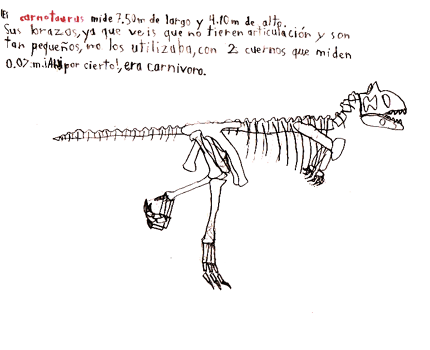 El carnotaurus mide 7.50m de largo y 4.10m de alto.
Sus brazos, ya que veis que no tieren articulación y son
tan pequeños, no los utilizaba, con 2 cuernos que miden
0.07.m. ¡Ah! por cierto!, era carnivoro.